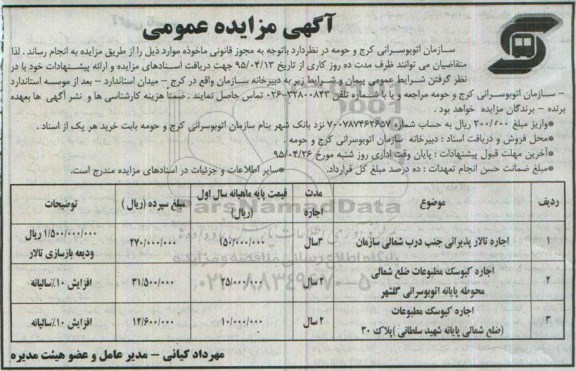 آگهی مزایده عمومی
سازمان اتوبوسرانی کرج و حومه در نظردارد باتوجه به مجوز قانونی ماخوذه موارد ذیل را از طریق مزایده به انجام رساند . لذا
متقاضیان می توانند ظرف مدت ده روز کاری از تاریخ ۹۵/۰۴/۱۳ جهت دریافت اسنادهای مزایده و ارائه پیشنهادات خود با در
نظر گرفتن شرایط عمومی پیمان و شرایط زیر به دبیرخانه سازمان واقع در کرج – میدان استاندارد – بعد از موسسه استاندارد
– سازمان اتوبوسرانی کرج و حومه مراجعه و یا با شماره تلفن ۳۲۸۰۰۸۴۳-۰۲۶ تماس حاصل نمایند . ضمنا هزینه کارشناسی ها و نشر آگهی ها بعهده
برنده – برندگان مزایده خواهد بود .
*واریز مبلغ ۳۰۰/۶۰۰ ریال به حساب شماره ۷۰۰۷۸۷۴۶۲۶۵۷ نزد بانک شهر بنام سازمان اتوبوسرانی کرج و حومه بابت خرید هر یک از اسناد .
*محل فروش و دریافت اسناد : دبیرخانه سازمان اتوبوسرانی کرج و حومه .
*آخرین مهلت قبول پیشنهادات : پایان وقت اداری روز شنبه مورخ ۹۵/۰۴/۲۶
*مبلغ ضمانت حسن انجام تعهدات : ده درصد مبلغ کل قرارداد. *سایر اطلاعات و جزئیات در اسنادهای مزایده مندرج است.
ردیف موضوع مدت اجاره قیمت پایه ماهیانه سال اول (ریال) مبلغ سپرده (ریال) توضیحات
۱ اجاره تالار پذیرائی جنب درب شمالی سازمان ۳سال ۱۵۰/۰۰۰/۰۰۰ ۲۷۰/۰۰۰/۰۰۰ ۱/۵۰۰/۰۰۰/۰۰۰ ریال ودیعه بازسازی تالار
۲ اجاره کیوسک مطبوعات ضلع شمالی محوطه پایانه اتوبوسرانی گلشهر ۲ سال ۲۵/۰۰۰/۰۰۰ ۳۱/۵۰۰/۰۰۰ افزایش ۱۰٪سالیانه
۳ اجاره کیوسک مطبوعات (ضلع شمالی پایانه شهید سلطانی )پلاک ۳۰ ۲ سال ۱۰/۰۰۰/۰۰۰ ۱۲/۶۰۰/۰۰۰ افزایش ۱۰٪سالیانه
ParsNamadData
مهرداد کیانی – مدیر عامل و عضو هیئت مدیره